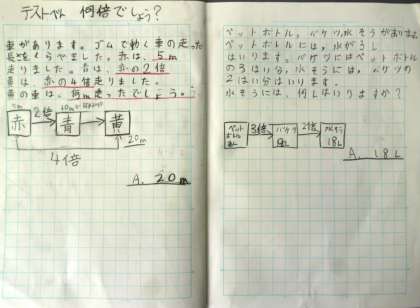 テストべん 何倍でしょう?
車があります。ゴムで動く車の走った
長さをくらべました。赤は、5m
走りました。青は、赤の2倍
黄は、赤の4倍走りました。
黄の車は、何m走ったでしょう。
5m
10m
赤
2倍
青
黄
20m
4倍
A. 20m
ペットボトル、バケツ、水そうがあります。
ペットボトルには、水が3L
はいります。バケツにはペットボトル
の3ばい分、水そうには、バケツの
2ばい分はいります。
水そうには、何Lはいりますか?
ペット
ボトル
3倍
バケツ
2倍
水そう
18L
A. 18L